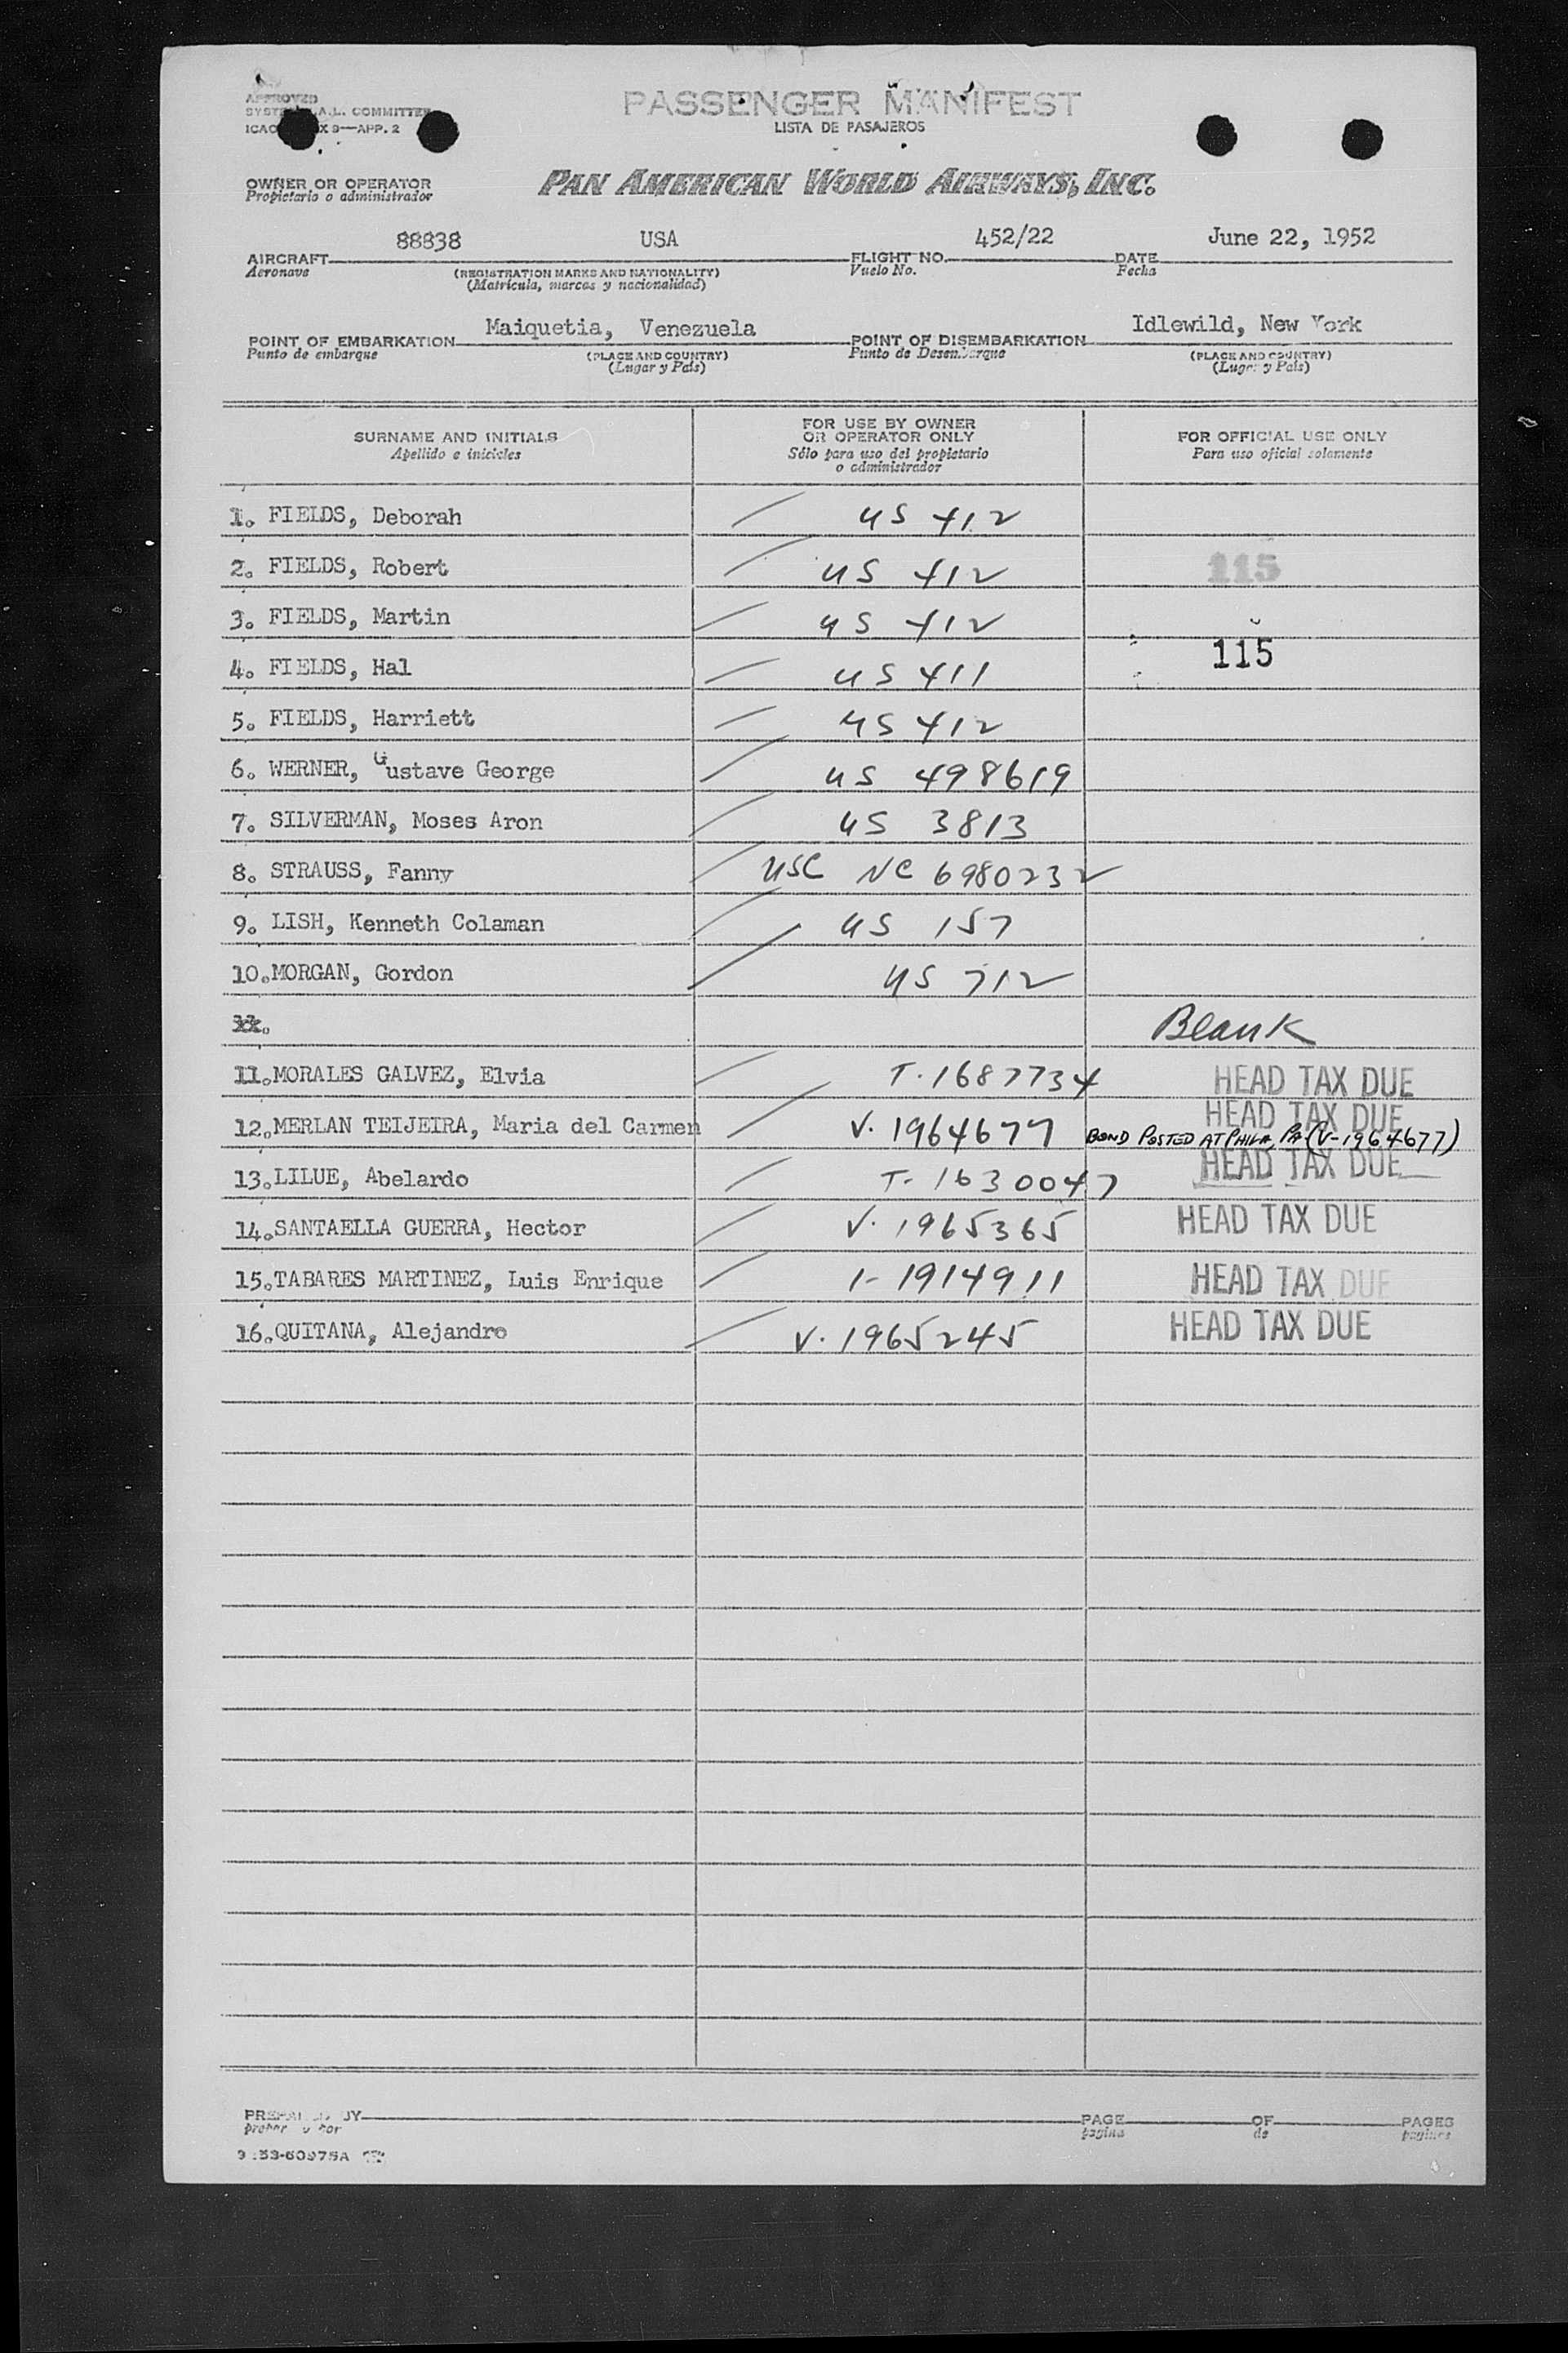 APPROVED
PASSENGER MANIFEST
A.L. COMMITTEE
LISTA DE PASAJEROS
9—APP. 2
OWNER OR OPERATOR
Propietario o administrador
PAN AMERICAN WORLD AIRWAYS, INC.
88838 USA 452/22 June 22, 1952
AIRCRAFT FLIGHT NO. DATE
Aeronave (REGISTRATION MARKS AND NATIONALITY) Vuelo No. Fecha
(Matrícula, marcas y nacionalidad)
Maiquetia, Venezuela Idlewild, New York
POINT OF EMBARKATION POINT OF DISEMBARKATION
Punto de embarque (PLACE AND COUNTRY) Punto de Desembarque (PLACE AND COUNTRY)
(Lugar y País) (Lugar y País)
SURNAME AND INITIALS FOR USE BY OWNER OR OPERATOR ONLY FOR OFFICIAL USE ONLY
Apellido e iniciales Sólo para uso del propietario o administrador Para uso oficial solamente
1. FIELDS, Deborah US 412
2. FIELDS, Robert US 412 115
3. FIELDS, Martin US 412
4. FIELDS, Hal US 411 115
5. FIELDS, Harriett US 412
6. WERNER, Gustave George US 498619
7. SILVERMAN, Moses Aron US 3813
8. STRAUSS, Fanny USC NC 6980232
9. LISH, Kenneth Colaman US 157
10. MORGAN, Gordon US 712
Blank
11. MORALES GALVEZ, Elvia T. 1687734 HEAD TAX DUE
12. MERLAN TEIJEIRA, Maria del Carmen V. 1964677 HEAD TAX DUE
BOND POSTED AT PHILA, PA. (V-1964677)
13. LILUE, Abelardo T- 1630047 HEAD TAX DUE
14. SANTAELLA GUERRA, Hector V. 1965365 HEAD TAX DUE
15. TABARES MARTINEZ, Luis Enrique 1-1914911 HEAD TAX DUE
16. QUITANA, Alejandro V. 1965245 HEAD TAX DUE
PREPARED BY PAGE OF PAGES
pagina de paginas